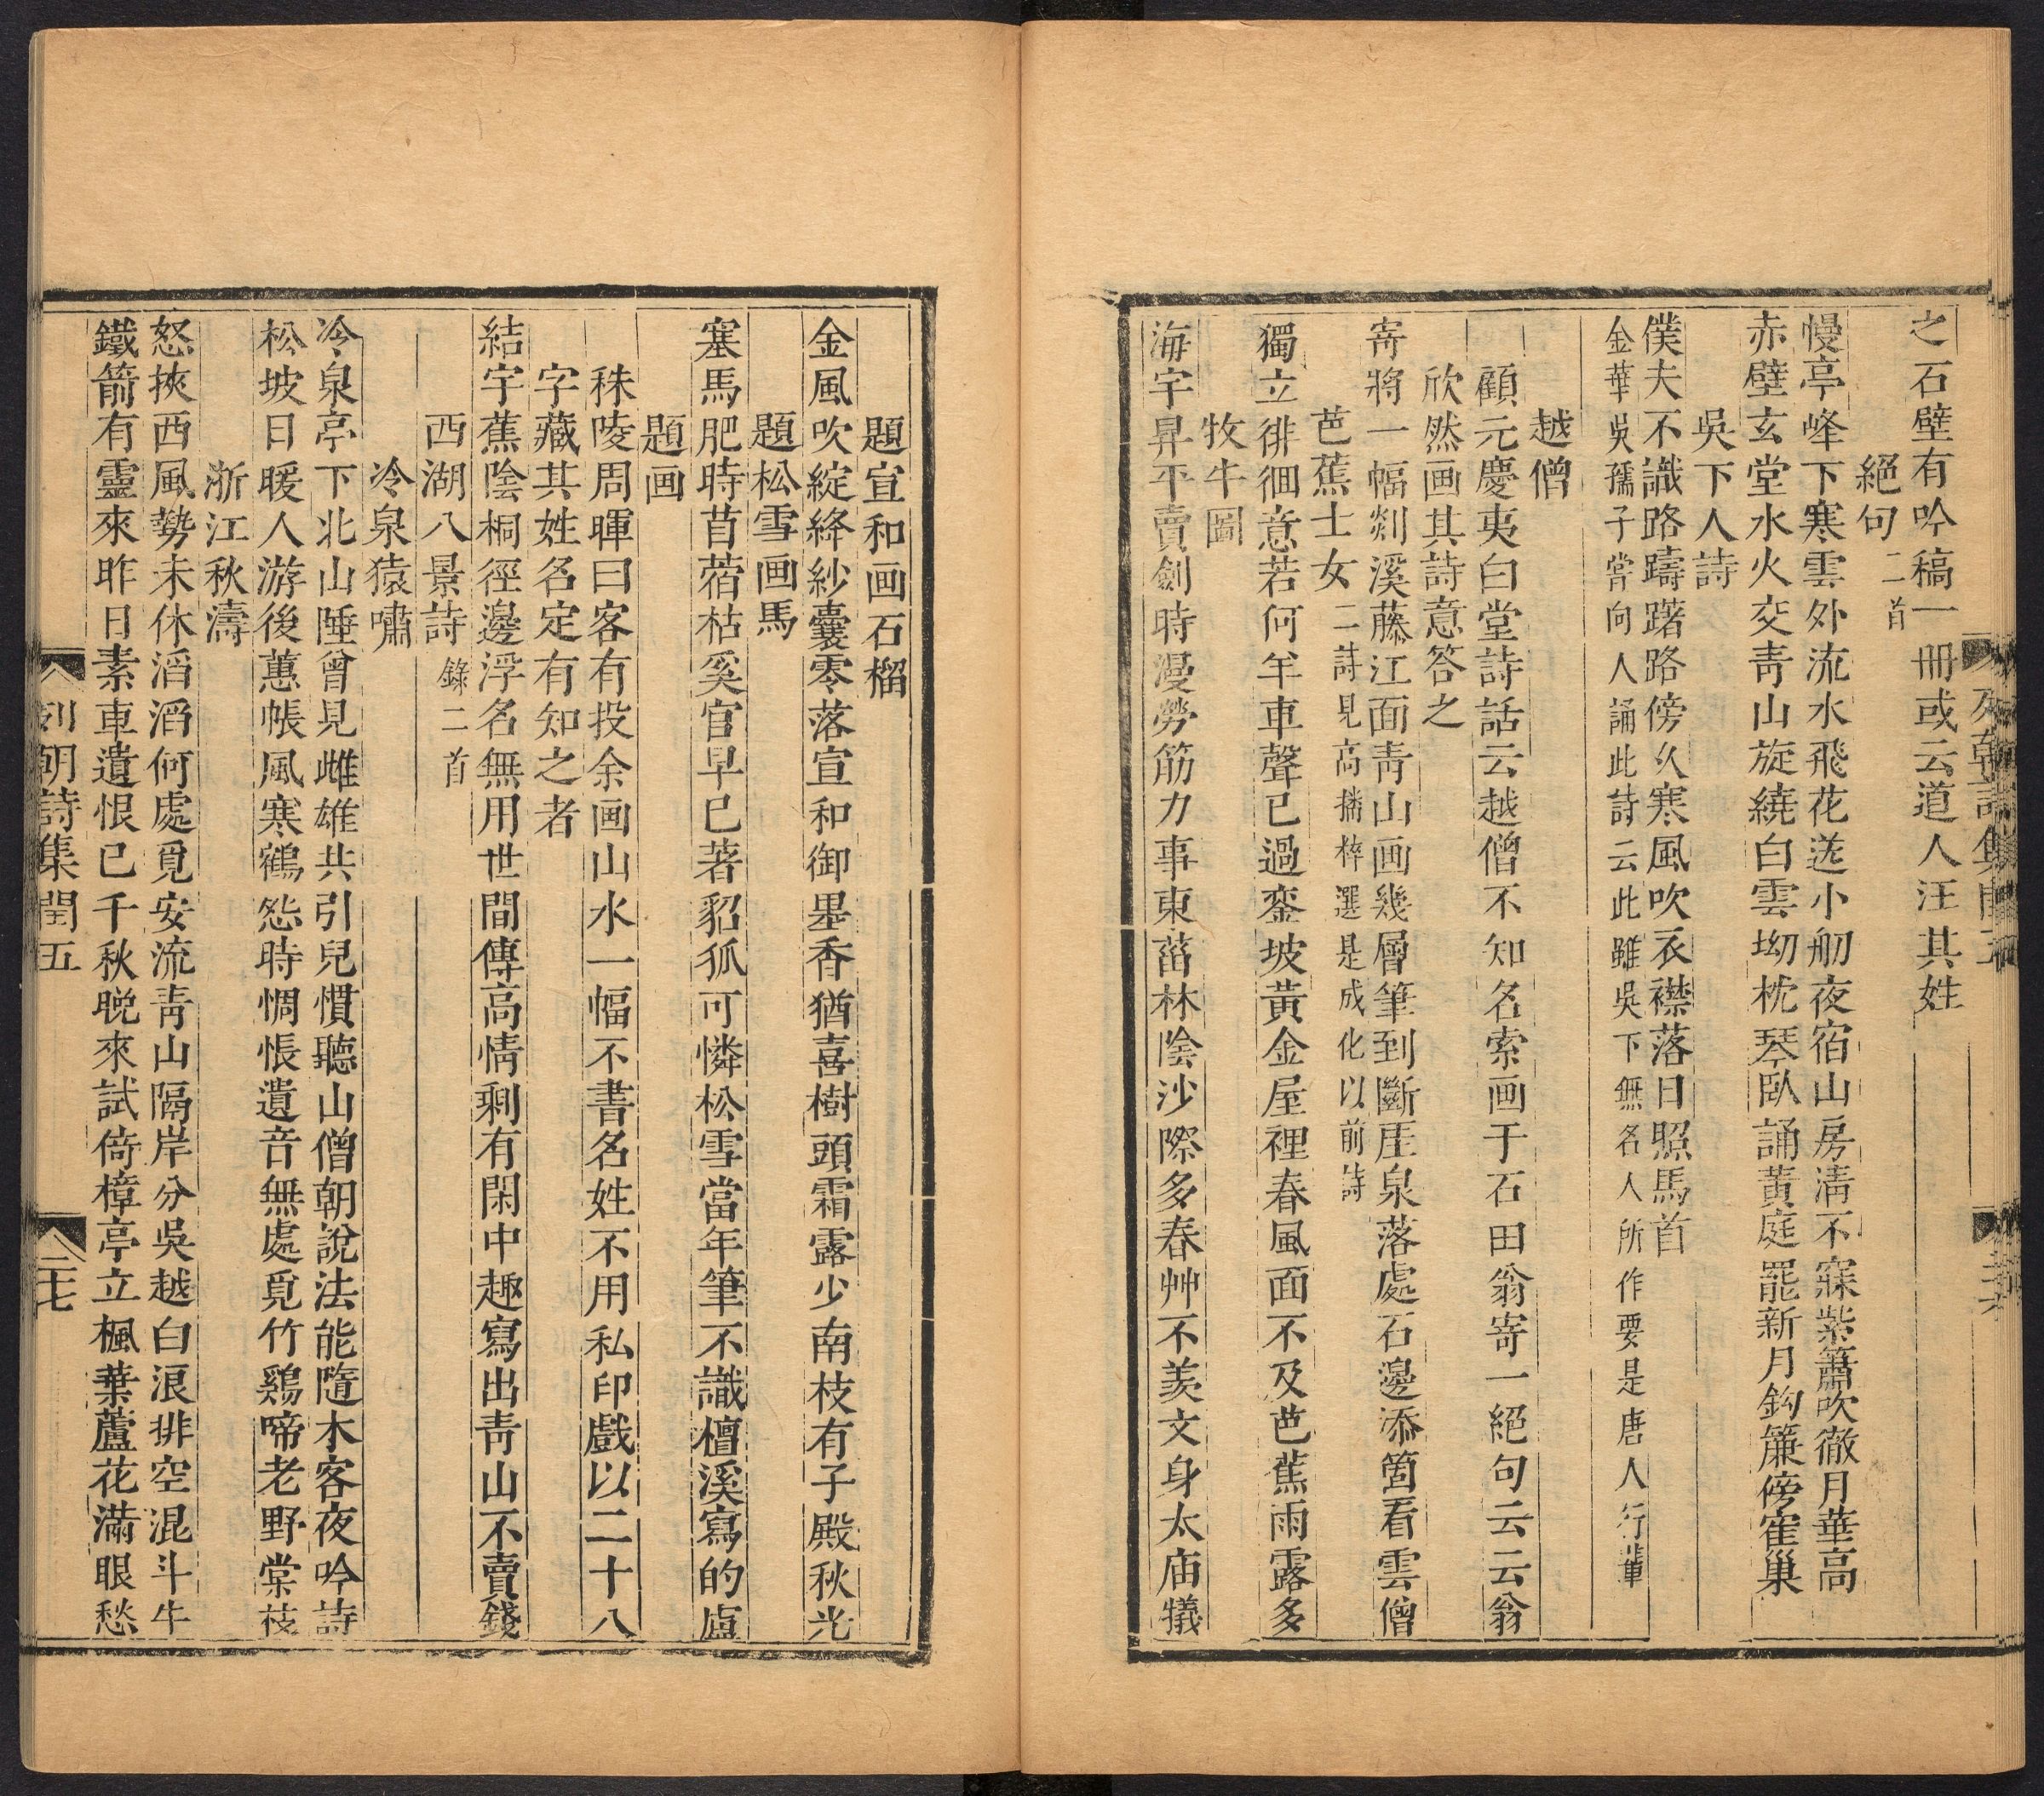 之石壁有吟稿一冊或云道人汪其姓
絕句二首
幔亭峰下寒雲外流水飛花送小舠夜宿山房清不寐紫簫吹徹月華高
赤壁玄堂水火交青山旋繞白雲坳枕琴臥誦黃庭罷新月鈎簾傍寉巢
吳下人詩
僕夫不識路躊躇路傍久寒風吹衣襟落日照馬首
金華吳孺子嘗向人誦此詩云此雖吳下無名人所作要是唐人行輩
越僧
顧元慶夷白堂詩話云越僧不知名索画于石田翁寄一絕句云云翁
欣然画其詩意答之
寄將一幅剡溪藤江面青山画幾層筆到斷厓泉落處石邊添箇看雲僧
芭蕉士女二詩見高播梓選是成化以前詩
獨立徘徊意若何羊車聲已過鑾坡黃金屋裡春風面不及芭蕉雨露多
牧牛圖
海宇昇平賣劍時漫勞筋力事東菑林陰沙際多春艸不羨文身太庙犧
題宣和画石榴
金風吹綻絳紗囊零落宣和御墨香猶喜樹頭霜露少南枝有子殿秋光
題松雪画馬
塞馬肥時苜蓿枯奚官早已著貂狐可憐松雪當年筆不識檀溪寫的盧
題画
秣陵周暉曰客有投余画山水一幅不書名姓不用私印戲以二十八
字藏其姓名定有知之者
結宇蕉陰桐徑邊浮名無用世間傳高情剩有閑中趣寫出青山不賣錢
西湖八景詩錄二首
冷泉猿嘯
冷泉亭下北山陲曾見雌雄共引兒慣聽山僧朝說法能隨木客夜吟詩
松坡日暖人游後蕙帳風寒鶴怨時惆悵遺音無處覓竹鷄啼老野棠枝
浙江秋濤
怒挾西風勢未休滔滔何處覓安流青山隔岸分吳越白浪排空混斗牛
鐵箭有靈來昨日素車遺恨已千秋晚來試倚樟亭立楓葉蘆花滿眼愁
列朝詩集閏五
二十七